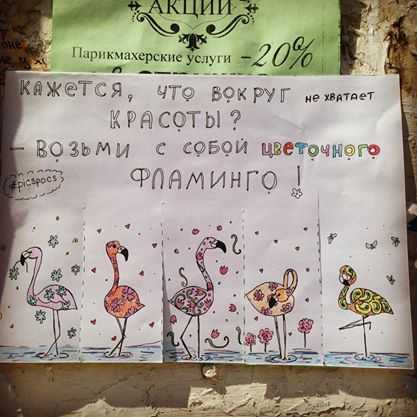 АКЦИИ
Парикмахерские услуги -20%
КАЖЕТСЯ, ЧТО ВОКРУГ НЕ ХВАТАЕТ
КРАСОТЫ?
- ВОЗЬМИ С СОБОЙ ЦВЕТОЧНОГО
#picspocs
ФЛАМИНГО!